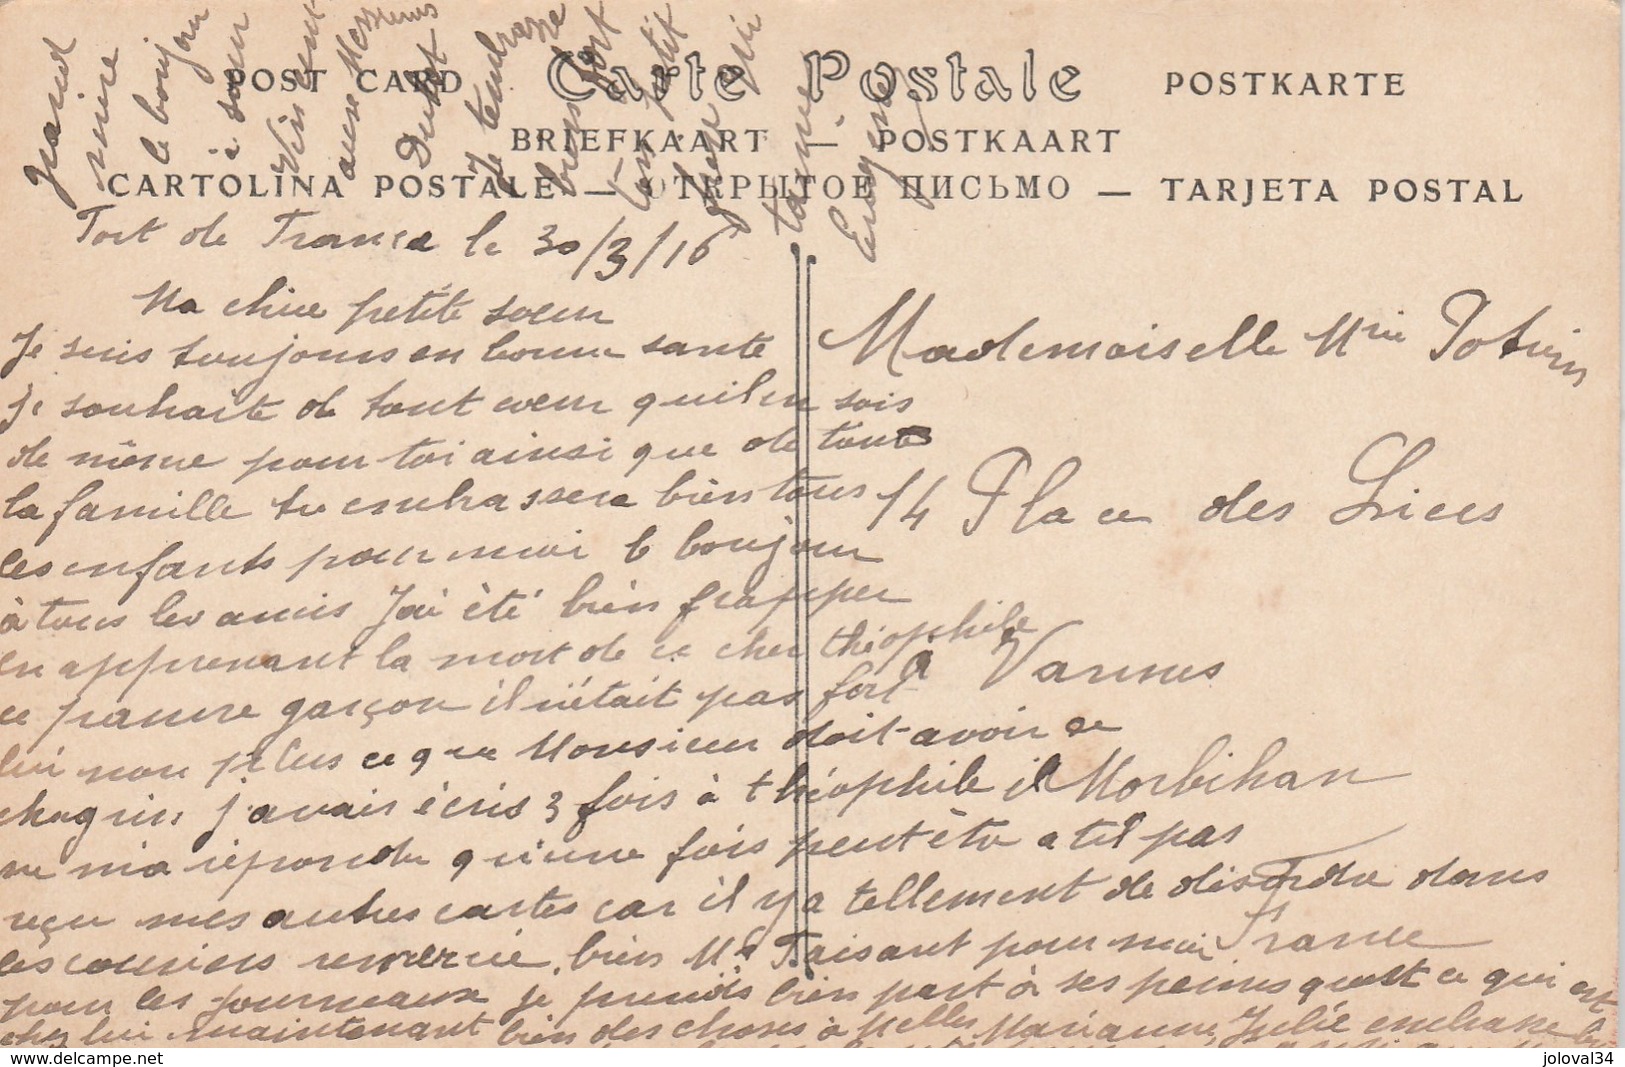 POST CARD Carte Postale POSTKARTE
BRIEFKAART — POSTKAART
CARTOLINA POSTALE — ОТКРЫТОЕ ПИСЬМО — TARJETA POSTAL
Fort de France le 30/3/16
Ma chère petite soeur
Je suis toujours en bonne santé
je souhaite de tout coeur quil en sois
de même pour toi ainsi que de toute
la famille tu embrassera bien tous
les enfants pour moi le bonjour
à tous les amis J'ai été bien frapper
en apprenant la mort de ce cher théophile
ce pauvre garçon il n'était pas fort
lui non plus ce que Monsieur doit avoir de
chagrin j'avais écris 3 fois à théophile il
ne m'a répondu qu'une fois peut être a til pas
reçu mes autres cartes car il y a tellement de désordre dans
les courriers remercie bien Mr Faisant pour moi
pour les journaux je prends bien part à ses peines quest ce qui est
chez lui maintenant bien des choses à Melles Marianne, Julie embrasse
Mademoiselle Mrie Potier
14 Place des Lices
à Vannes
Morbihan
France
grand
mère
le bonjour
à soeur
Vincent
aux Messieurs
Je tembrasse
bien fort
ton petit
frère qui
taime
Eugène
www.delcampe.net
joloval34